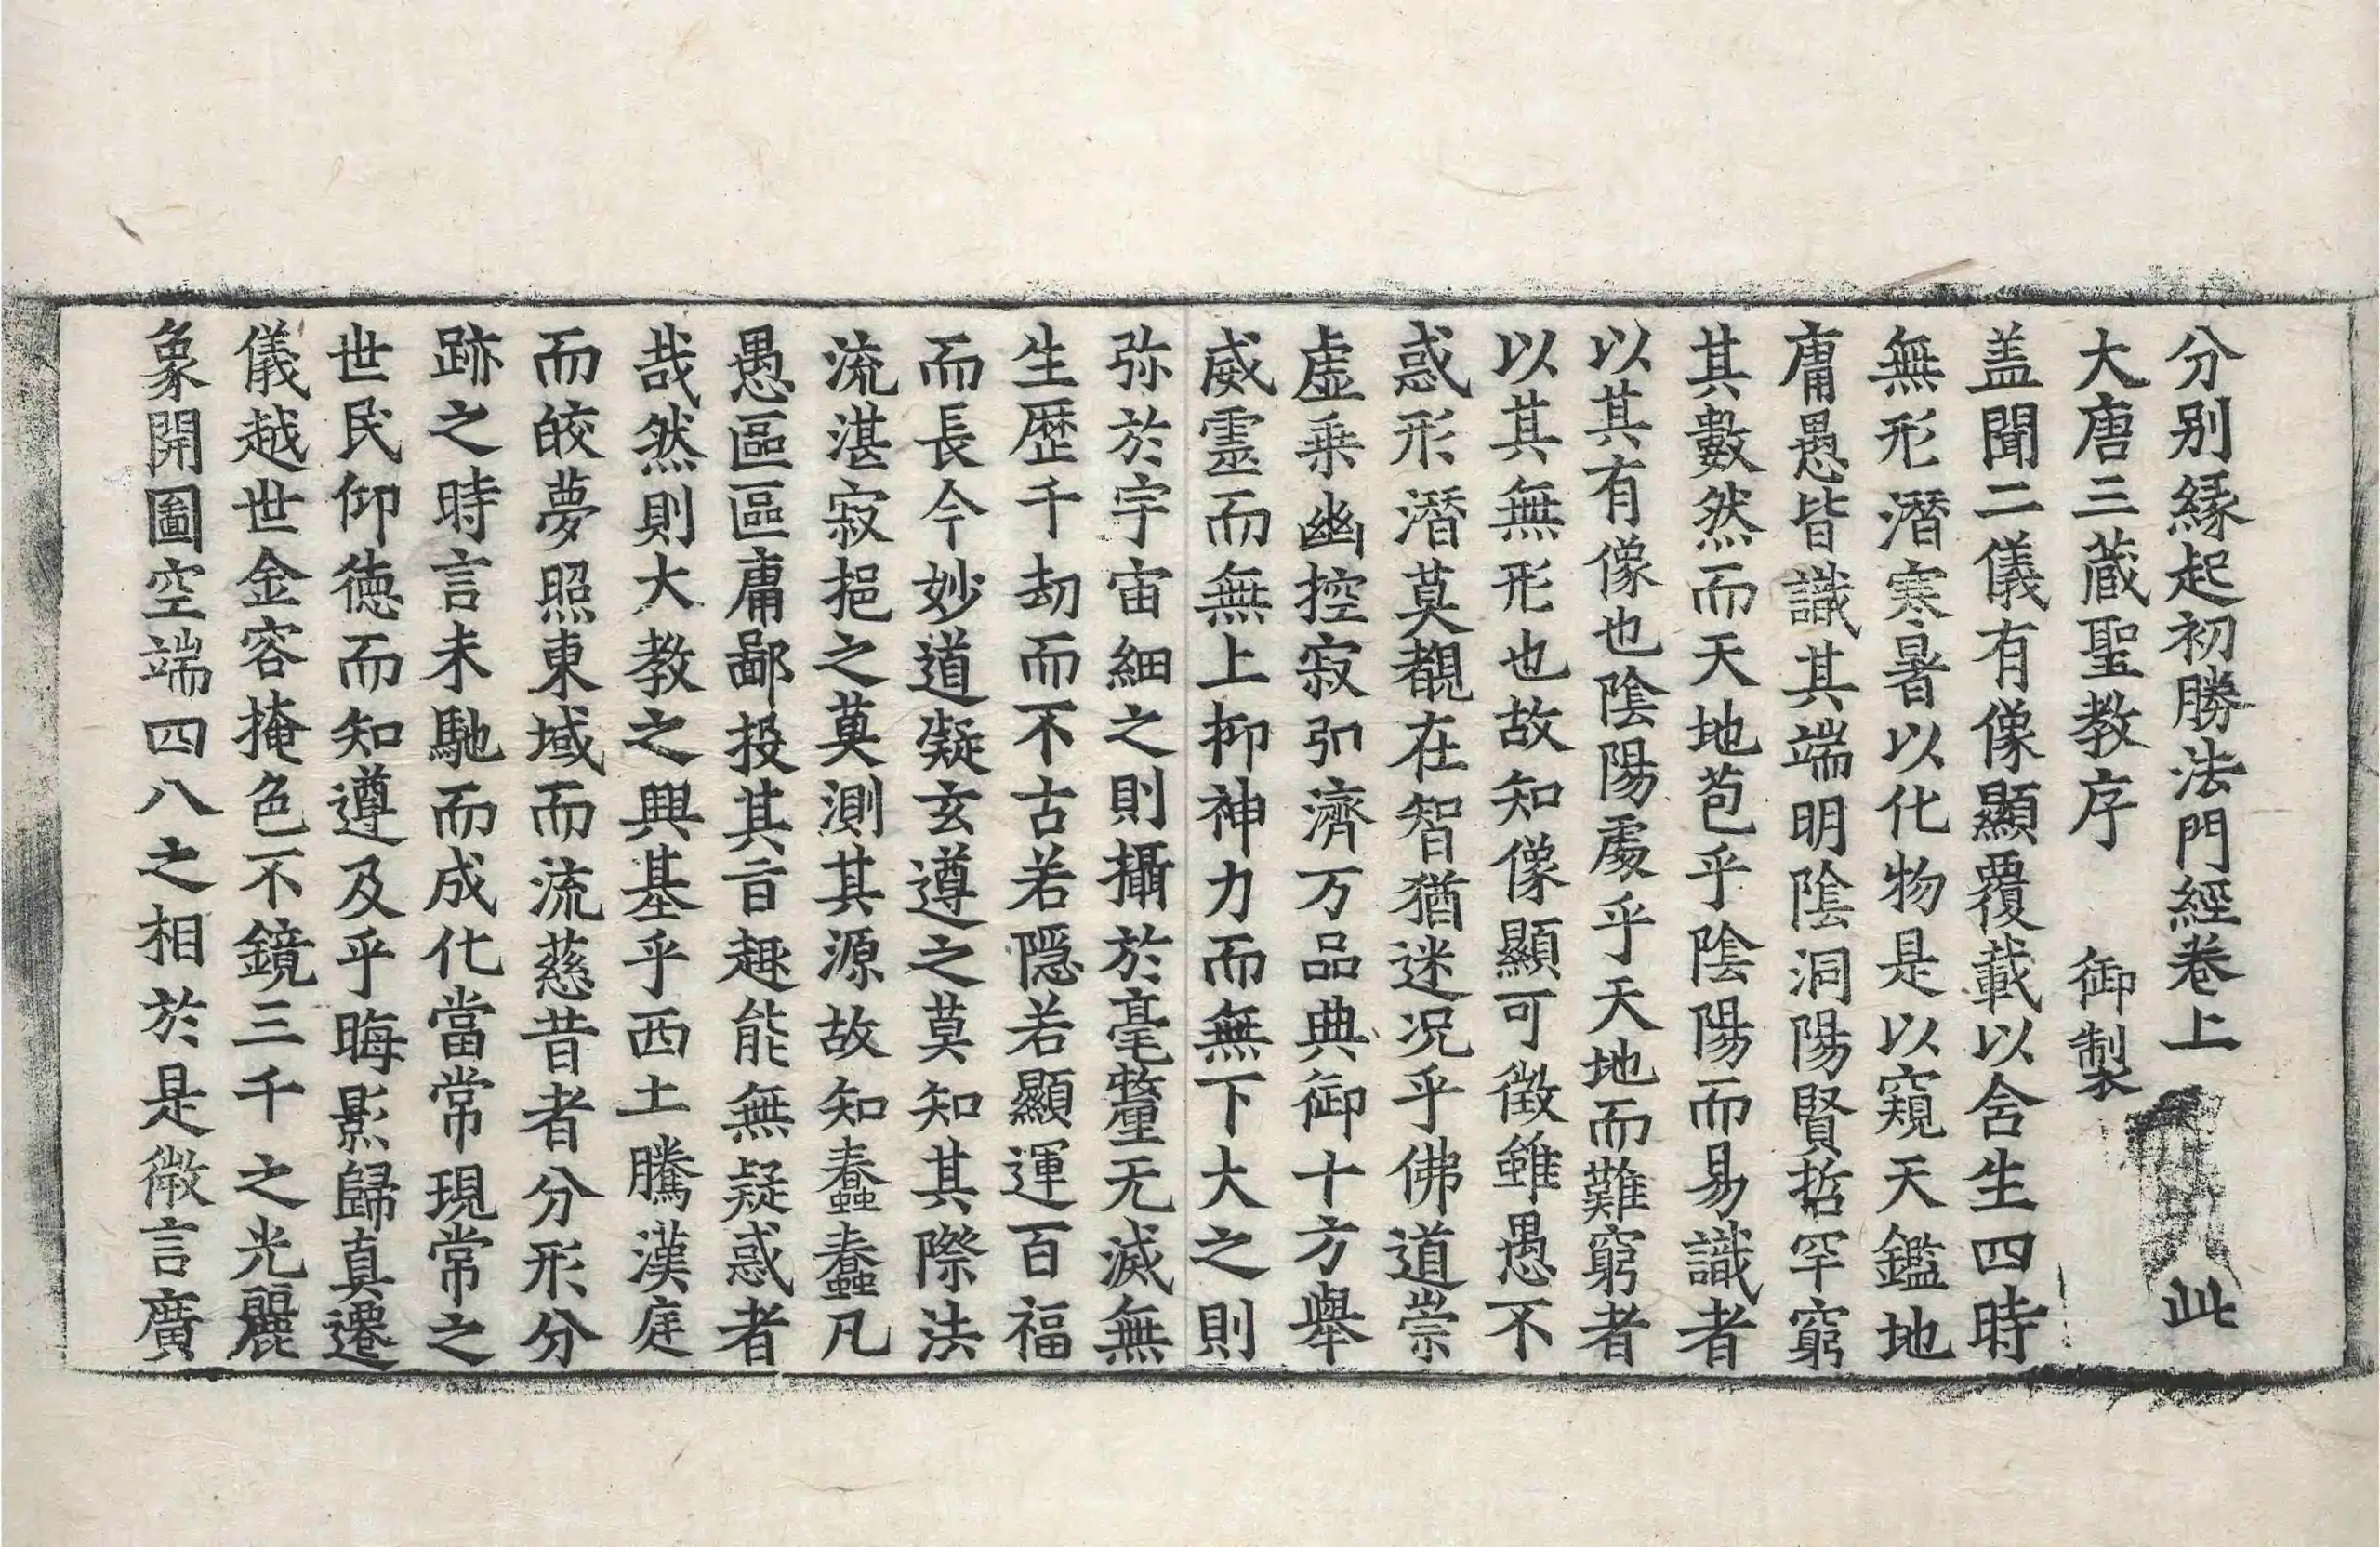 分别縁起初勝法門經卷上 此
大唐三蔵聖教序 御製
盖聞二儀有像顯覆載以含生四時
無形潛寒暑以化物是以窺天鑑地
庸愚皆識其端明陰洞陽賢哲罕窮
其數然而天地苞乎陰陽而易識者
以其有像也陰陽處乎天地而難窮者
以其無形也故知像顯可徵雖愚不
惑形潛莫覩在智猶迷況乎佛道崇
虛乗幽控寂引濟万品典御十方舉
威靈而無上抑神力而無下大之則
弥於宇宙細之則攝於毫釐无滅無
生歷千劫而不古若隱若顯運百福
而長今妙道凝玄遵之莫知其際法
流湛寂挹之莫測其源故知蠢蠢凡
愚區區庸鄙投其旨趣能無疑惑者
哉然則大教之興基乎西土騰漢庭
而皎夢照東域而流慈昔者分形分
跡之時言未馳而成化當常現常之
世民仰徳而知遵及乎晦影歸真遷
儀越世金容掩色不鏡三千之光麗
象開圖空端四八之相於是微言廣